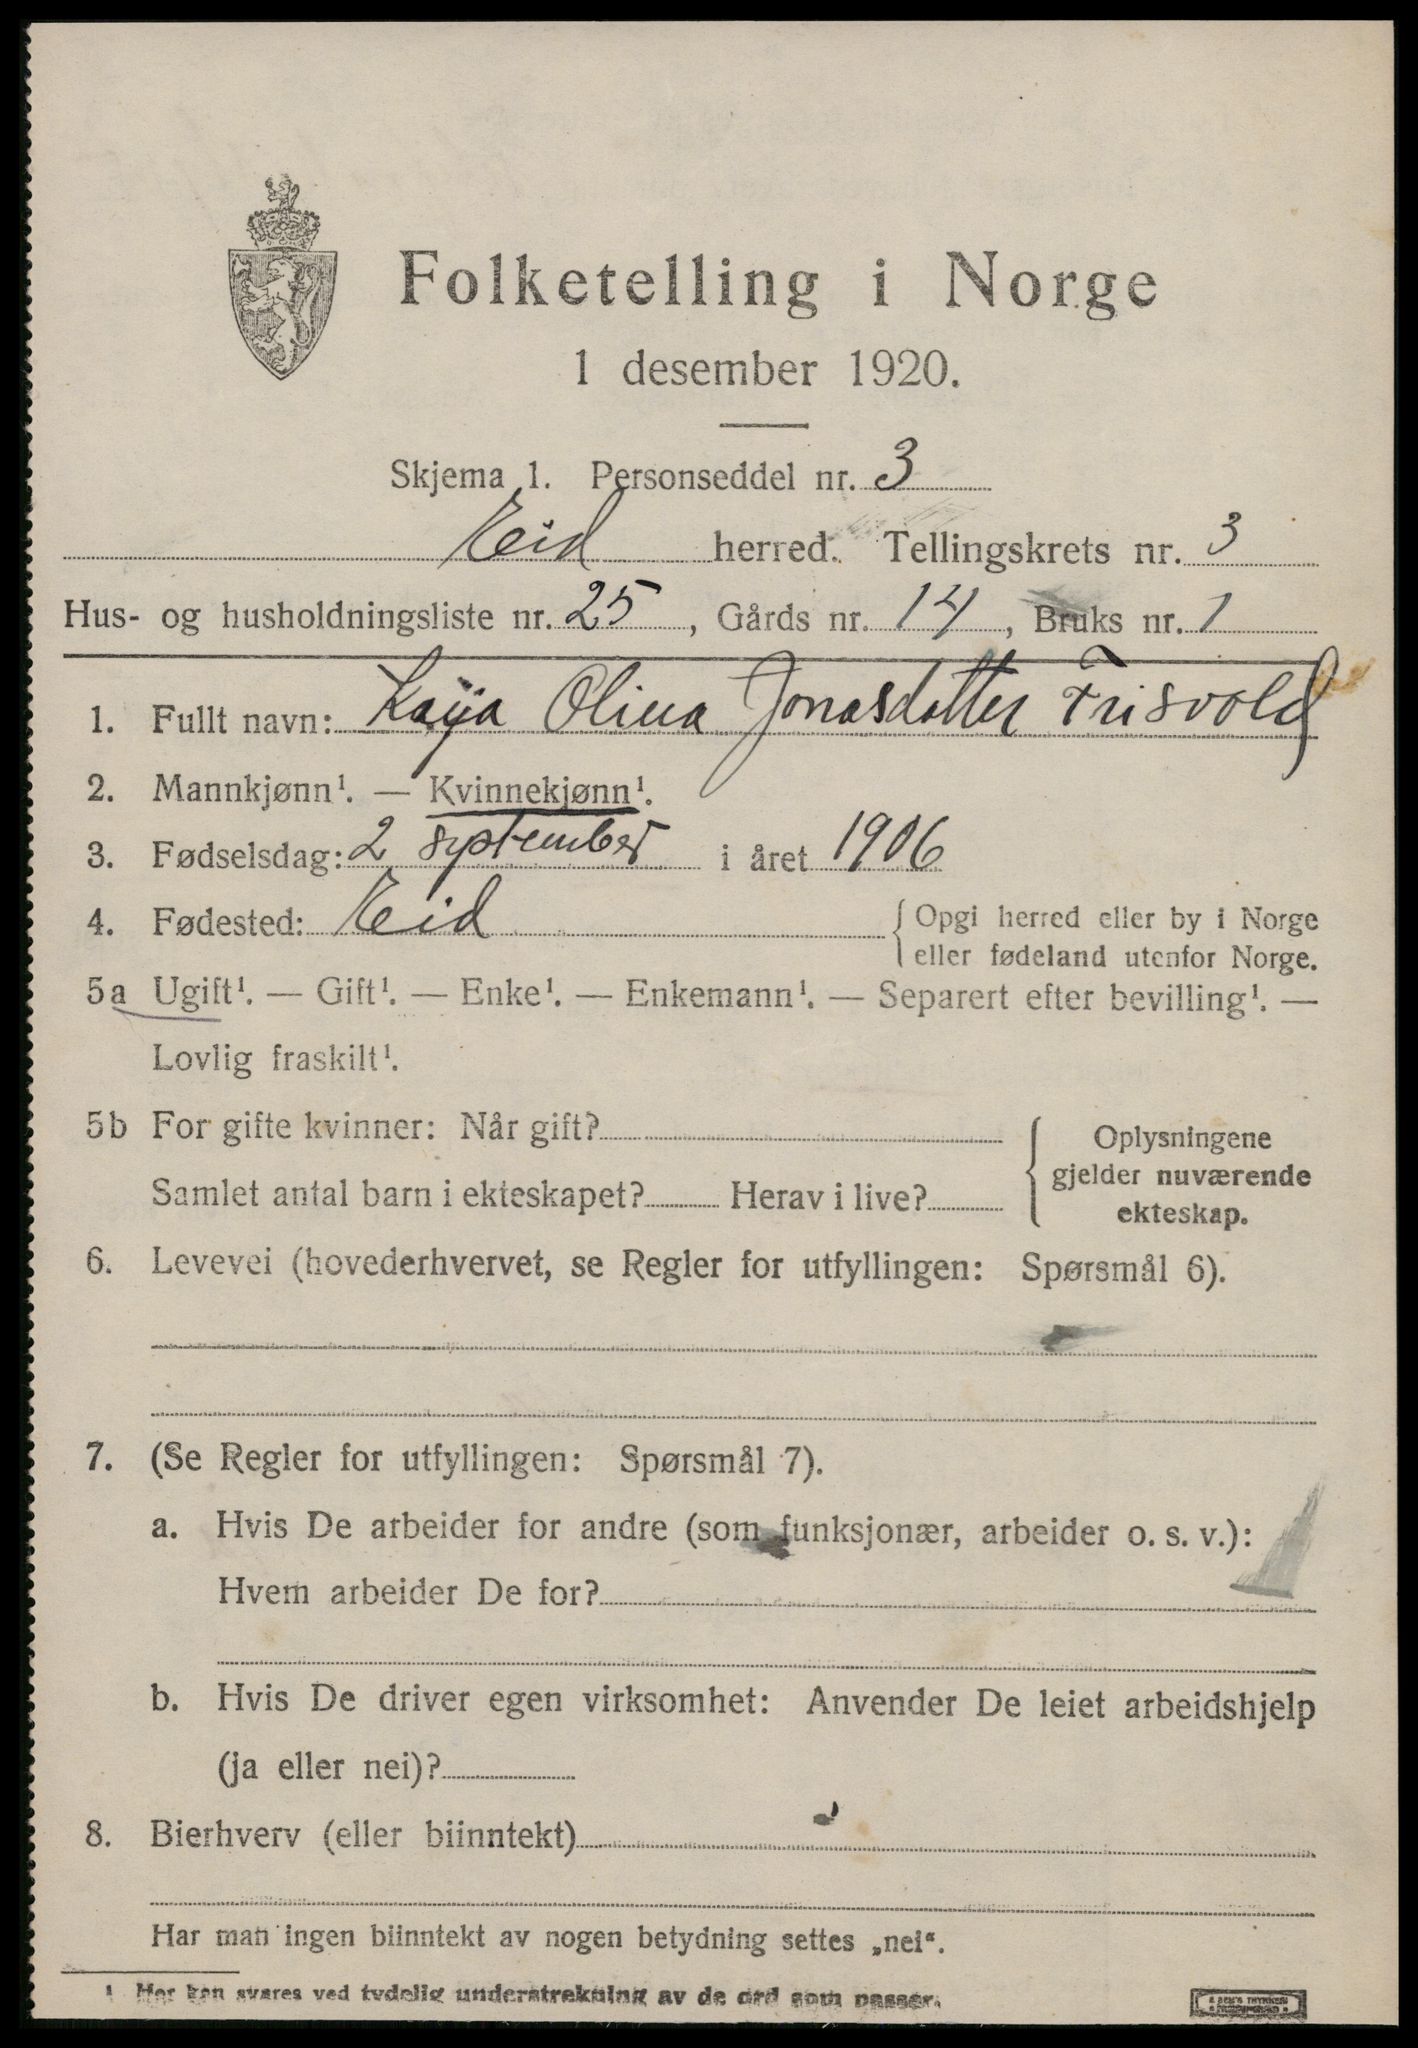 Folketelling i Norge
1 desember 1920.
Skjema 1. Personseddel nr. 3
Eid herred. Tellingskrets nr. 3
Hus- og husholdningsliste nr. 25, Gårds nr. 14, Bruks nr. 1
1. Fullt navn: Kaija Olina Jonasdatter Frisvold
2. Mannkjønn¹. — Kvinnekjønn¹.
3. Fødselsdag: 2 september i året 1906
4. Fødested: Eid { Opgi herred eller by i Norge
eller fødeland utenfor Norge.
5a Ugift¹. — Gift¹. — Enke¹. — Enkemann¹. — Separert efter bevilling¹. —
Lovlig fraskilt¹.
5b For gifte kvinner: Når gift?
Samlet antal barn i ekteskapet? Herav i live?
{ Oplysningene
gjelder nuværende
ekteskap.
6. Levevei (hovederhvervet, se Regler for utfyllingen: Spørsmål 6).
7. (Se Regler for utfyllingen: Spørsmål 7).
a. Hvis De arbeider for andre (som funksjonær, arbeider o. s. v.):
Hvem arbeider De for?
b. Hvis De driver egen virksomhet: Anvender De leiet arbeidshjelp
(ja eller nei)?
8. Bierhverv (eller biinntekt)
Har man ingen biinntekt av nogen betydning settes „nei“.
¹ Her kan svares ved tydelig understrekning av de ord som passer.